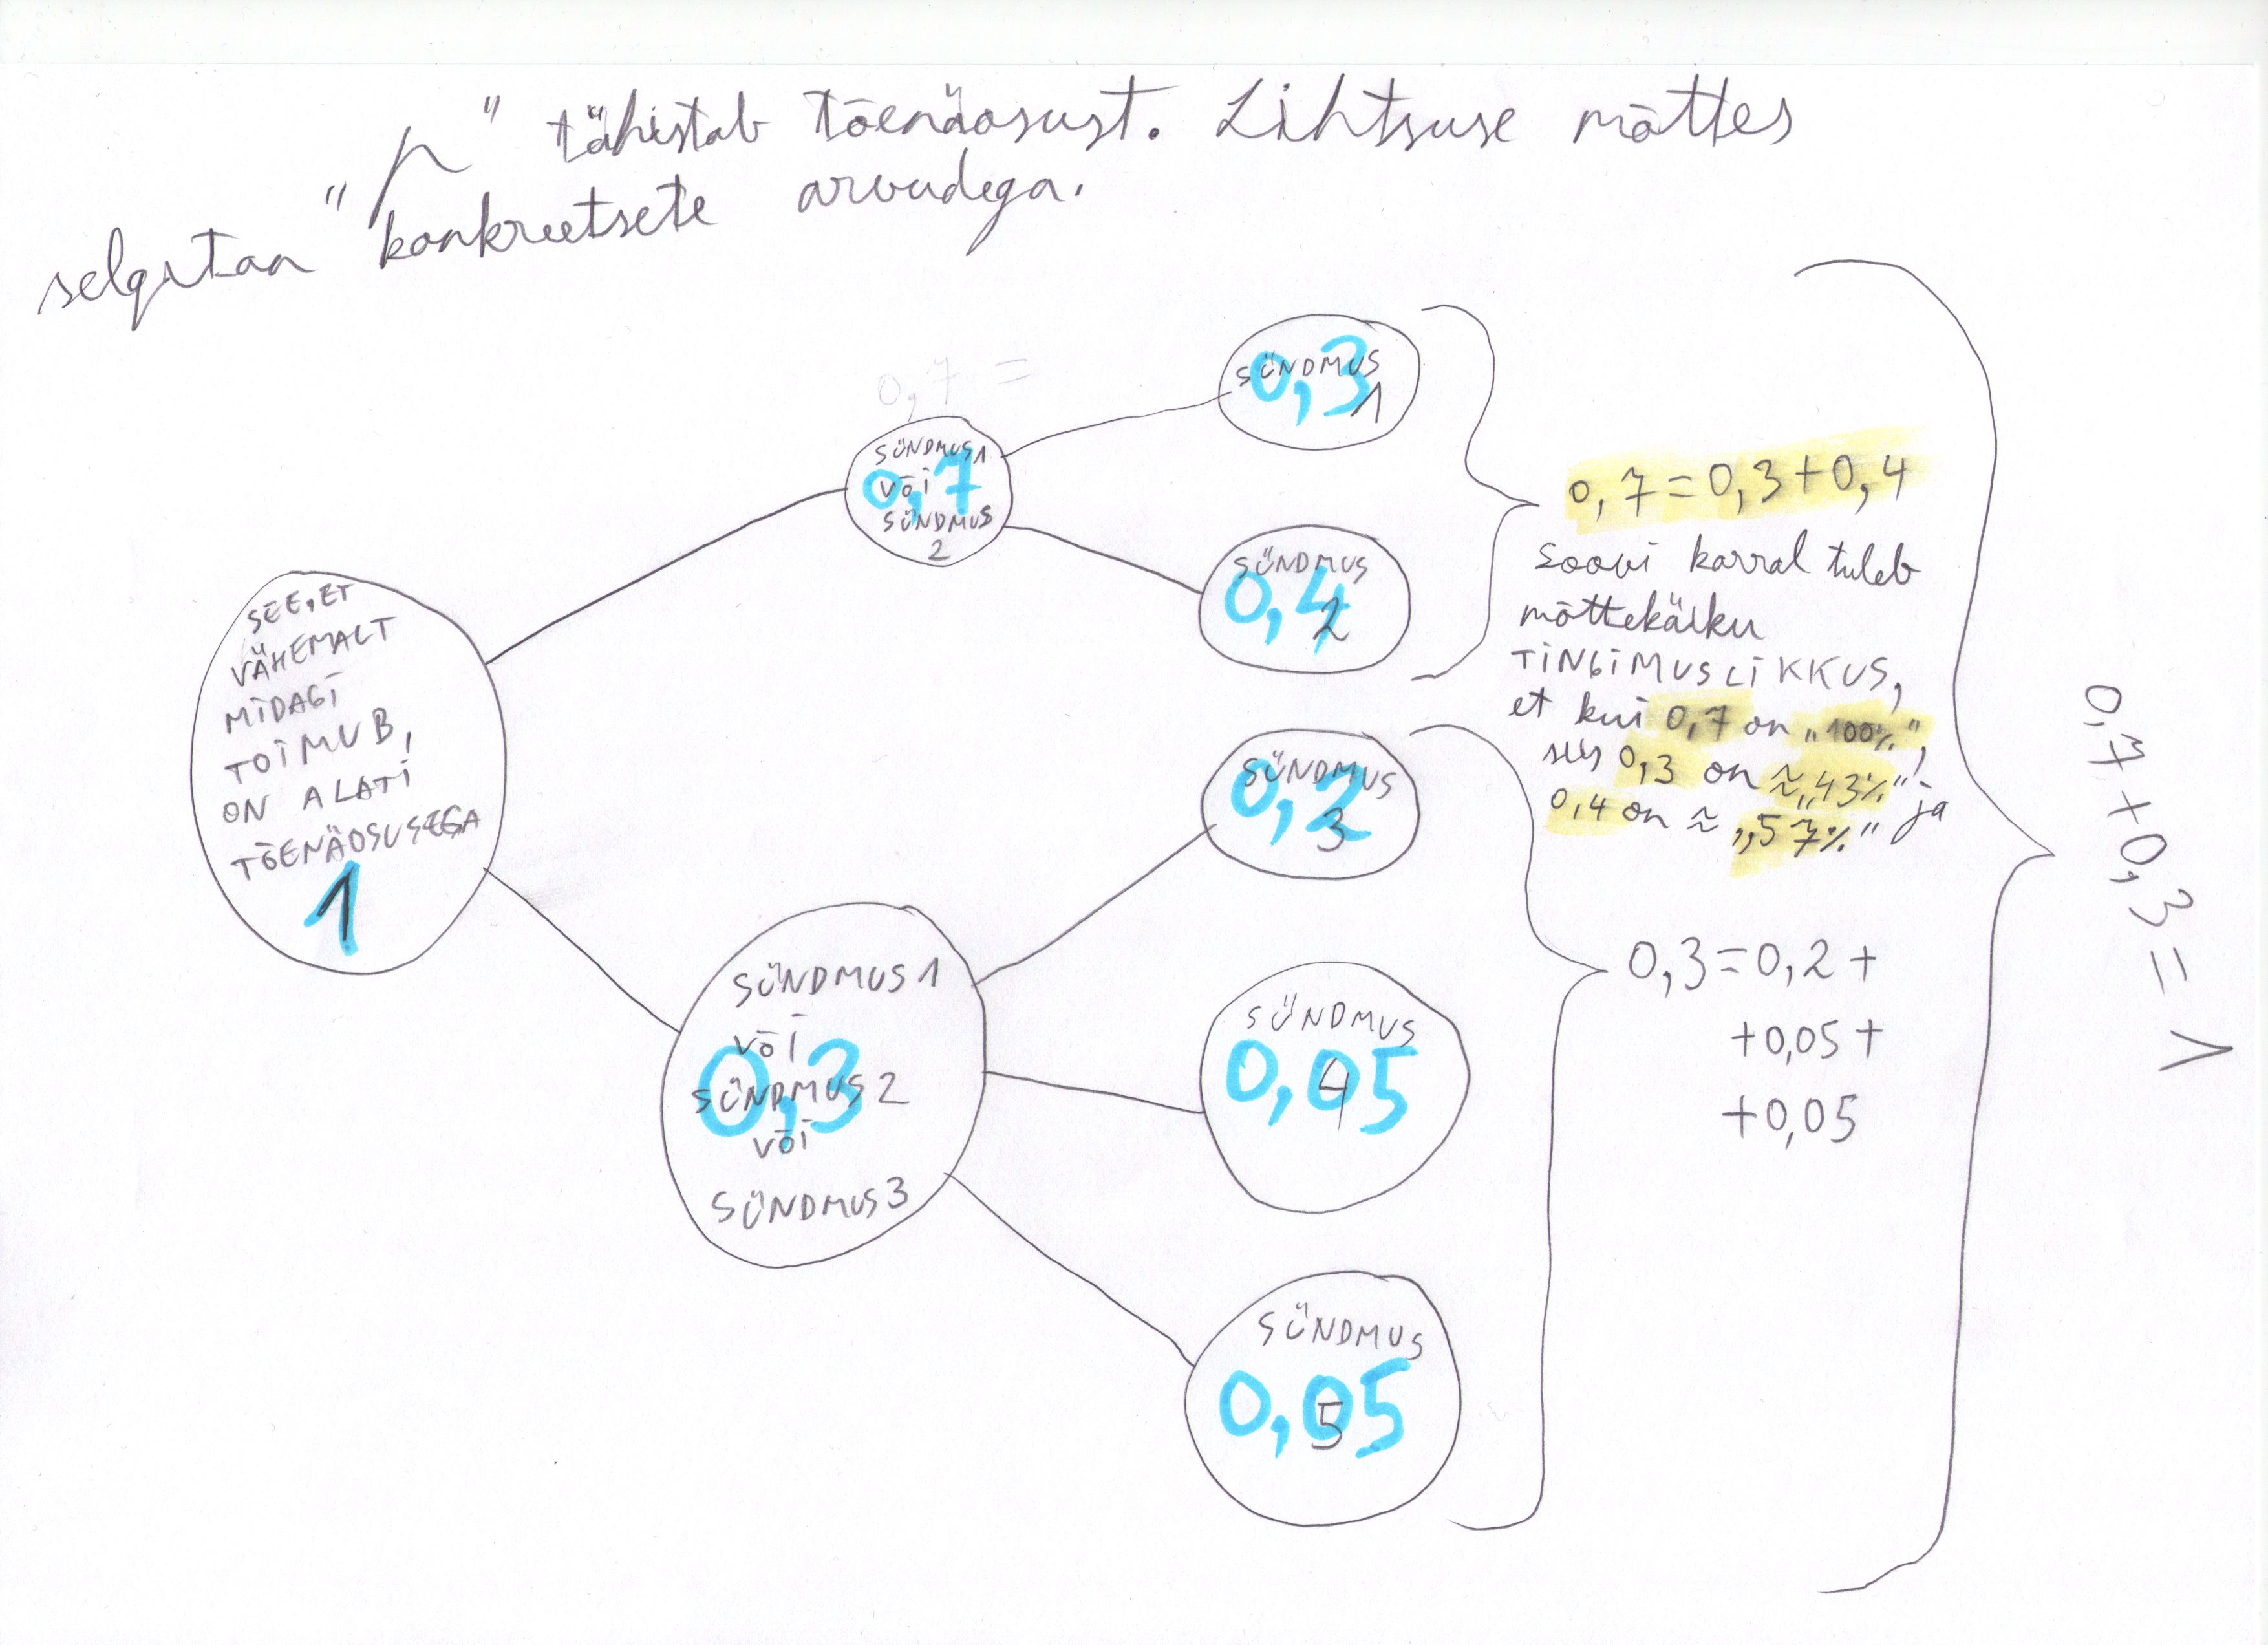 "p" tähistab tõenäosust. Lihtsuse mõttes
selgitan konkreetsete arvudega.
0,7 =
SEE, ET
VÄHEMALT
MIDAGI
TOIMUB,
ON ALATI
TÕENÄOSUSEGA
1
SÜNDMUS 1
VÕI
0,7
SÜNDMUS
2
SÜNDMUS
0,3
1
SÜNDMUS
0,4
2
0,7=0,3+0,4
soovi korral tuleb
mõttekäiku
TINGIMUSLIKKUS,
et kui 0,7 on „100%",
siis 0,3 on ≈„43%" ja
0,4 on ≈ „57%"
SÜNDMUS 1
VÕI
0,3
SÜNDMUS 2
VÕI
SÜNDMUS 3
SÜNDMUS
0,2
3
SÜNDMUS
0,05
4
SÜNDMUS
0,05
5
0,3=0,2+
+0,05+
+0,05
0,7+0,3=1